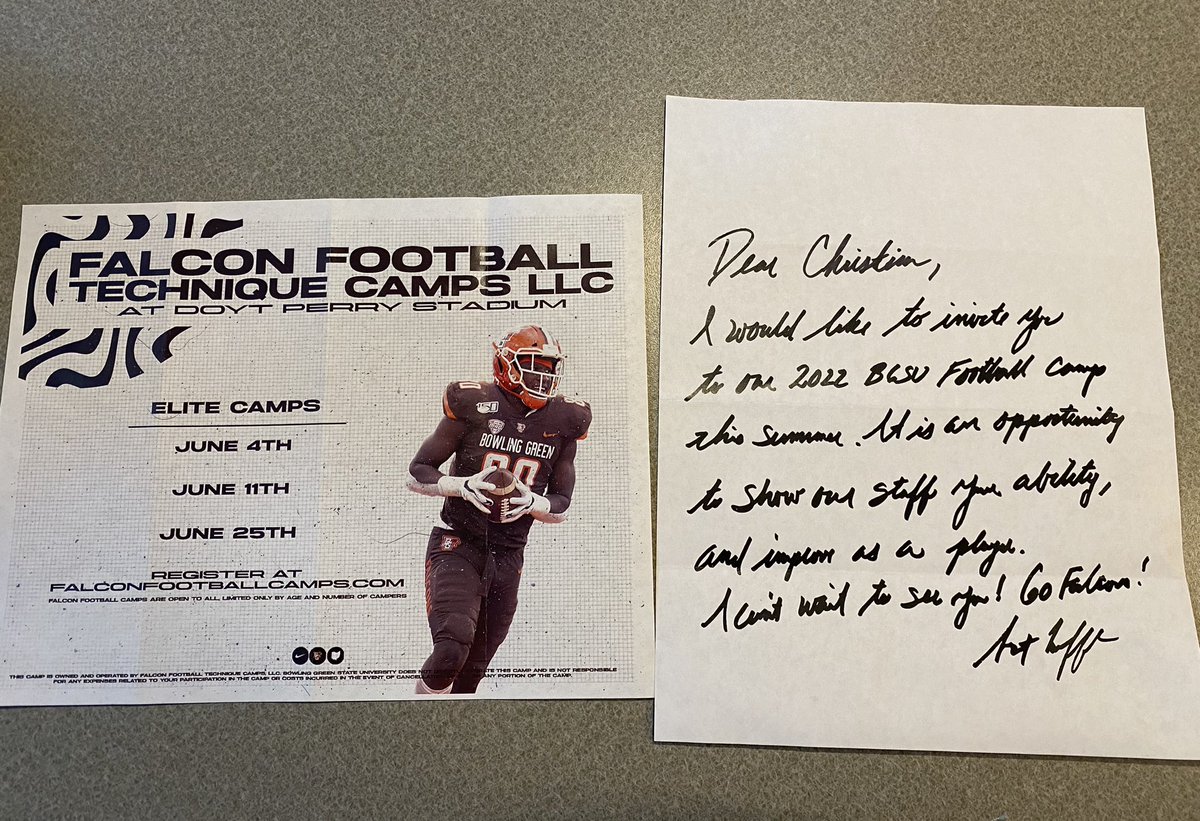 FALCON FOOTBALL
TECHNIQUE CAMPS LLC
AT DOYT PERRY STADIUM
ELITE CAMPS
JUNE 4TH
JUNE 11TH
JUNE 25TH
REGISTER AT
FALCONFOOTBALLCAMPS.COM
FALCON FOOTBALL CAMPS ARE OPEN TO ALL, LIMITED ONLY BY AGE AND NUMBER OF CAMPERS
150
BOWLING GREEN
80
THIS CAMP IS OWNED AND OPERATED BY FALCON FOOTBALL TECHNIQUE CAMPS, LLC. BOWLING GREEN STATE UNIVERSITY DOES THIS CAMP AND IS NOT RESPONSIBLE
FOR ANY EXPENSES RELATED TO YOUR PARTICIPATION IN THE CAMP OR COSTS INCURRED IN THE EVENT OF ANY PORTION OF THE CAMP.
Dear Christian,
I would like to invite you
to our 2022 BGSU Football Camp
this summer. It is an opportunity
to show our staff your ability,
and improve as a player.
I can't wait to see you! Go Falcons!